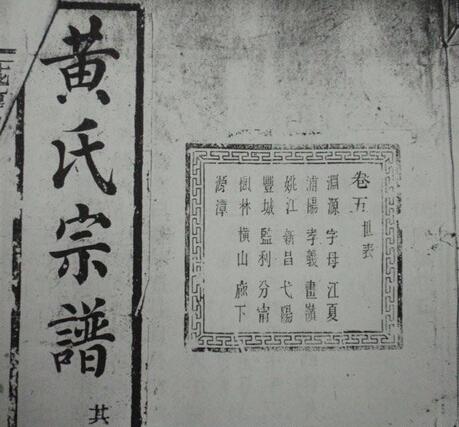 卷五 世表
淵源 字母 江夏
浦陽 孝義 畫嶺
姚江 新昌 弋陽
豐城 監利 分甯
林 橫山 下
源漳
黃氏宗譜
其